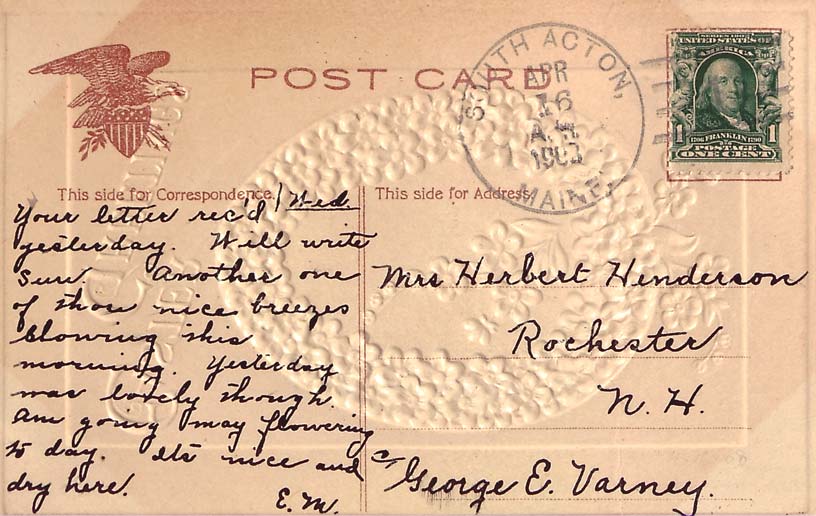 POST CARD
SOUTH ACTON,
APR
16
A.M.
MAINE.
SERIES 1902
UNITED STATES OF
AMERICA
1 1706 FRANKLIN 1790 1
POSTAGE
ONE CENT
This side for Correspondence.
Your letter rec'd / Wed.
yesterday. Will write
Sun. Another one
of those nice breezes
blowing this
morning. Yesterday
was lovely though.
Am going may flowering
to day. Its nice and
dry here.
E.M.
This side for Address.
Mrs Herbert Henderson
Rochester
N. H.
c/ George E. Varney.